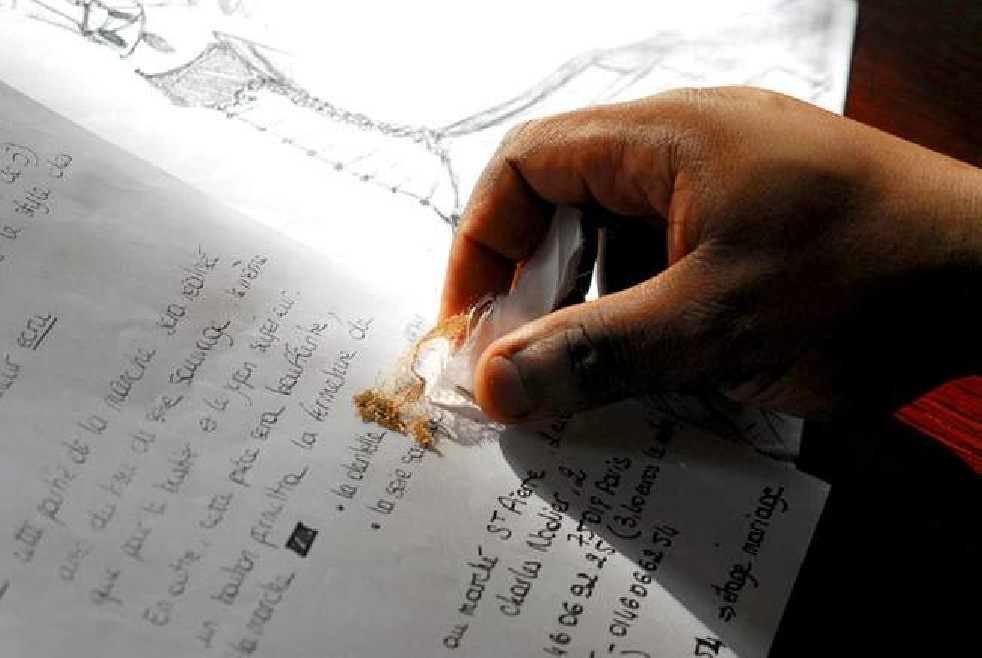 le style des
ecru
cette partie de la manche sera réalisé
avec du tissu de soie sauvage le même
que pour le bustier et le jupon supérieur.
En outre, cette pièce sera bouffante,
un bouton permettra la fermeture de
la manche
• la dentelle
• la soie
au marché St Pierre
Charles Nodier, 2
75018 Paris
46 06 92 25 (3.10 euros le
- 0146066254
54 => étage mariage